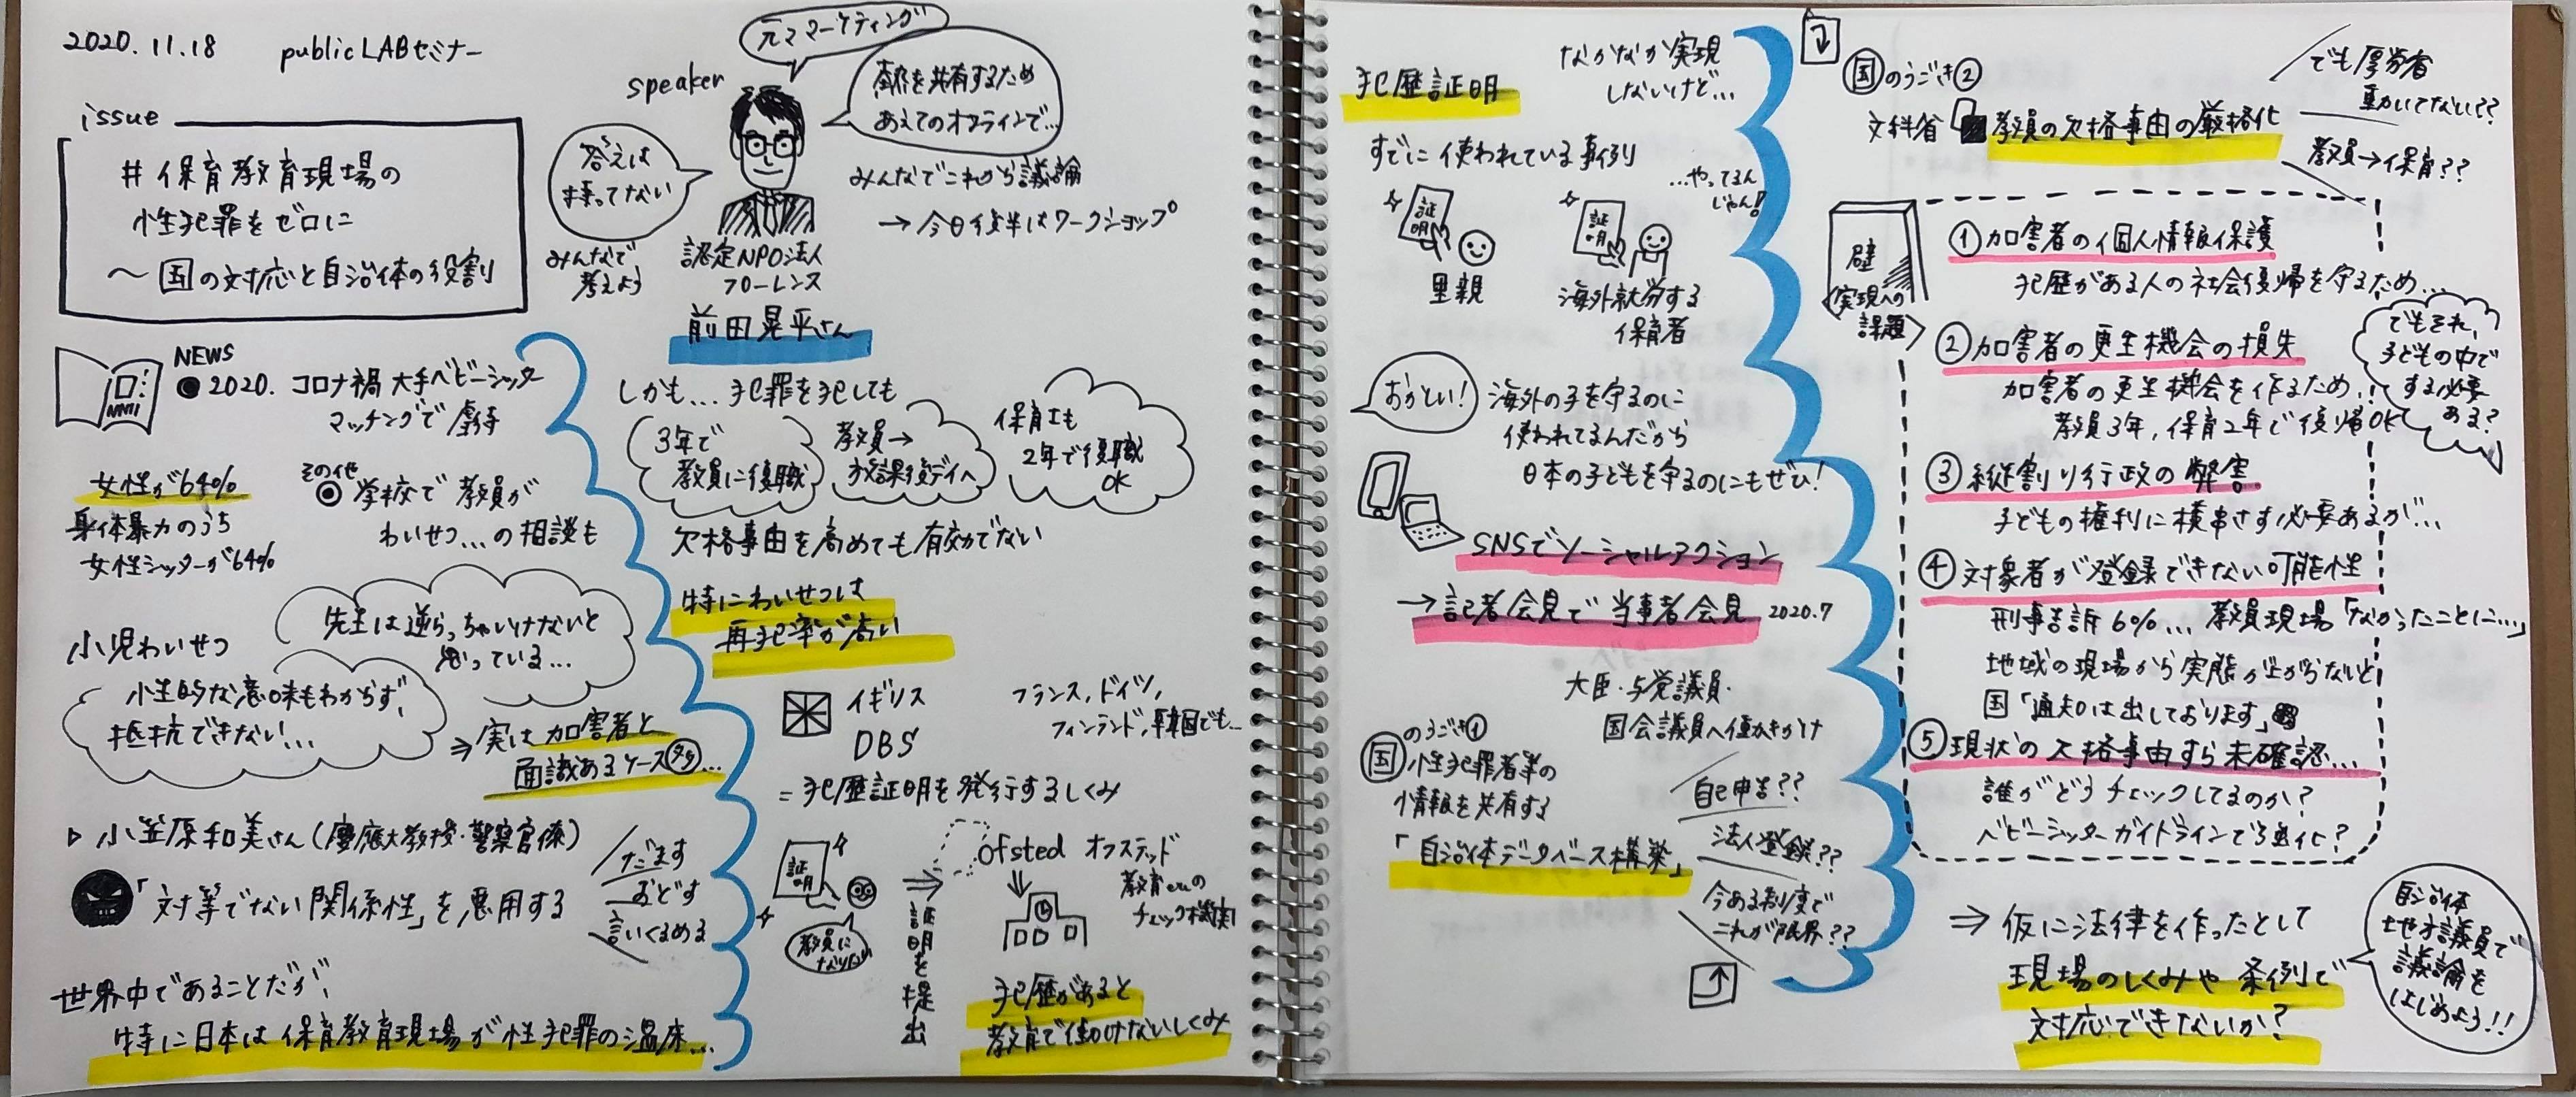 2020.11.18 publicLABセミナー
issue
# 保育教育現場の
性犯罪をゼロに
～国の対応と自治体の役割
speaker
元ママーケティング
熱を共有するため
あえてのオンラインで…
答えは
持ってない
みんなで
考えよう
みんなでこれから議論
→今日後半はワークショップ
認定NPO法人
フローレンス
前田晃平さん
NEWS
●2020. コロナ禍 大手ベビーシッター
マッチングで虐待
女性が64%
身体暴力のうち
女性シッターが64%
その他
◉学校で教員が
わいせつ…の相談も
小児わいせつ
先生は逆らっちゃいけないと
思っている…
性的な意味もわからず、
抵抗できない…
⇒実は加害者と
面識あるケース多…
▷小笠原和美さん(慶應大教授・警察官僚)
「対等でない関係性」を悪用する
だます
おどす
言いくるめる
世界中であることだが、
特に日本は保育教育現場が性犯罪の温床…
しかも…犯罪を犯しても
3年で
教員に復職
教員→
放課後デイへ
保育士も
2年で復職
OK
欠格事由を高めても有効でない
特にわいせつは
再犯率が高い
イギリス
DBS
フランス,ドイツ,
フィンランド,韓国でも…
=犯歴証明を発行するしくみ
証明
教員に
なりたい
⇒
証明を提出
ofsted オフステッド
教育etcの
チェック機関
犯歴があると
教育で働けないしくみ
犯歴証明
なかなか実現
しないけど…
すでに使われている事例
…やってるん
じゃん!
証明
里親
証明
海外就労する
保育者
おかしい!
海外の子を守るのに
使われてるんだから
日本の子どもを守るのにもぜひ!
SNSでソーシャルアクション
→記者会見で当事者会見 2020.7
大臣・与党議員・
国会議員へ働きかけ
国のうごき①
性犯罪者等の
情報を共有する
「自治体データベース構築」
自己申告??
法人登録??
今ある制度で
これが限界??
国のうごき②
文科省 教員の欠格事由の厳格化
でも厚労省
動いてない??
教員→保育??
壁
実現への
課題
①加害者の個人情報保護
犯歴がある人の社会復帰を守るため…
②加害者の更生機会の損失
加害者の更生機会を作るため…
教員3年,保育2年で復帰OK
でもそれ、
子どもの中で
する必要
ある?
③縦割り行政の弊害
子どもの権利に横串さす必要あるが…
④対象者が登録できない可能性
刑事告訴6%… 教員現場「なかったことに…」
地域の現場から実態が上がらないと
国「通知は出しております」
⑤現状の欠格事由すら未確認…
誰がどうチェックしてるのか?
ベビーシッターガイドラインで強化?
⇒仮に法律を作ったとして
現場のしくみや条例で
対応できないか?
自治体
地方議員で
議論を
はじめよう!!